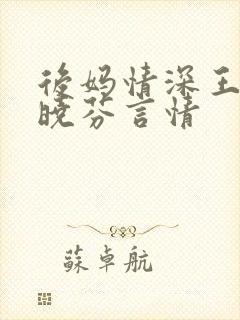 後妈情深王
晓芬言情
蘇卓航